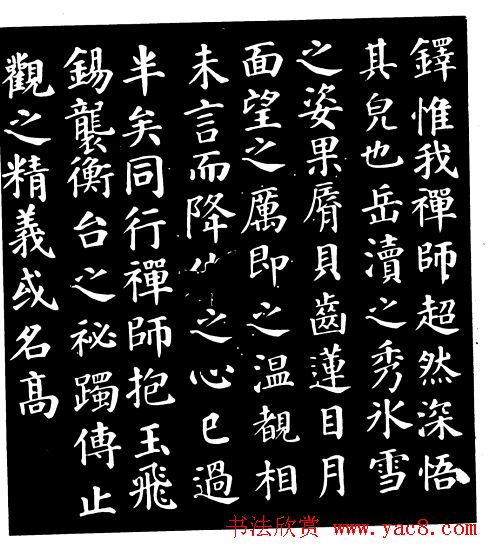 鐸惟我禪師超然深悟
其皃也岳瀆之秀冰雪
之姿果脣貝齒蓮目月
面望之厲即之温覩相
未言而降之心已過
半矣同行禪師抱玉飛
錫襲衡台之祕躅傳止
觀之精義或名髙
书法欣赏 www.yac8.com